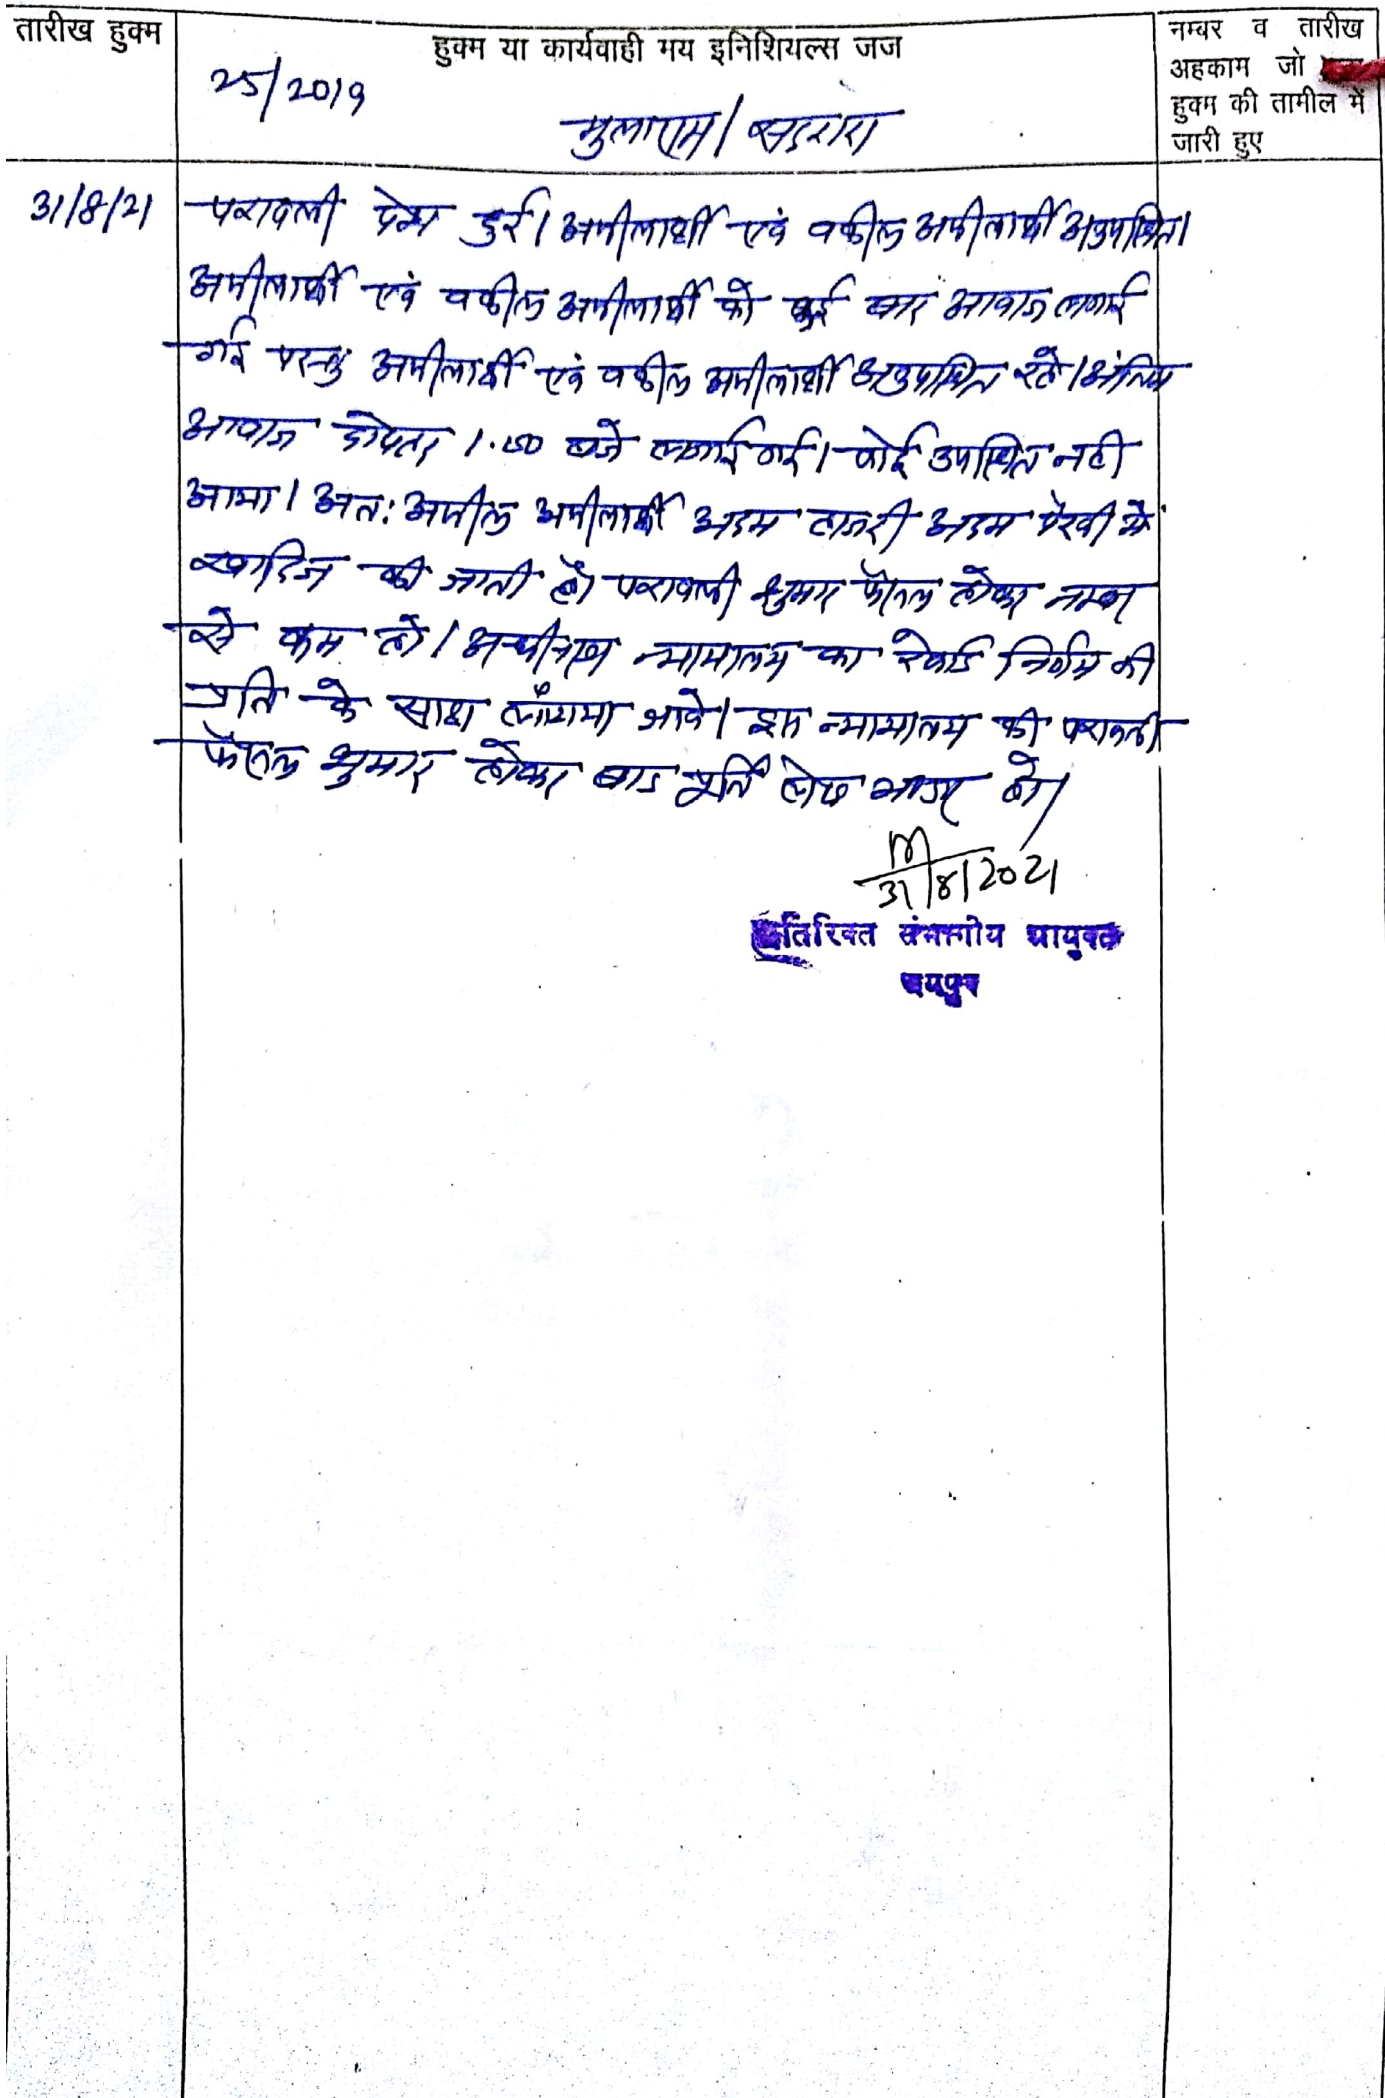 तारीख हुक्म
हुक्म या कार्यवाही मय इनिशियल्स जज
नम्बर व तारीख
अहकाम जो
हुक्म की तामील में
जारी हुए
25/2019
मुलाराम/
31/8/21
पत्रावली पेश हुई। अपीलार्थी एवं वकील अपीलार्थी अनुपस्थित।
अपीलार्थी एवं वकील अपीलार्थी को कई बार आवाज लगाई
गई परन्तु अपीलार्थी एवं वकील अपीलार्थी अनुपस्थित रहे। अंतिम
आवाज दोपहर 1.00 बजे लगाई गई। कोई उपस्थित नही
आया। अत: अपील अपीलार्थी अदम हाजरी अदम पैरवी में
खारिज की जाती है। पत्रावली शुमार फैसल होकर नम्बर
से कम हो। अधीनस्थ न्यायालय का रेकार्ड निर्णय की
प्रति के साथ लौटाया जावे। इस न्यायालय की पत्रावली
फैसल शुमार होकर बाद पूर्ति दाखिल दफ्तर हो।
31/8/2021
अतिरिक्त संभागीय आयुक्त
जयपुर